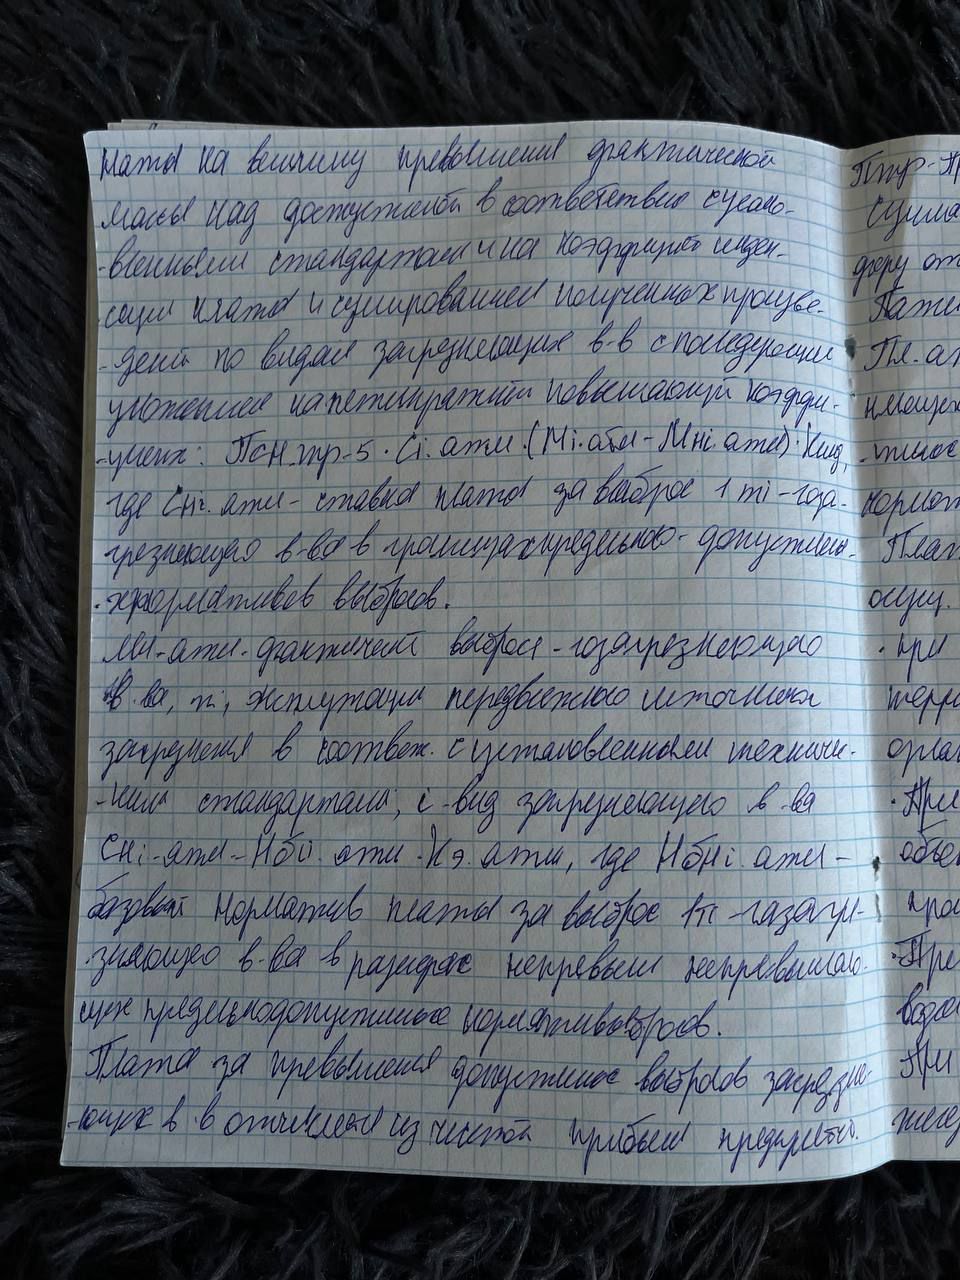 платы на величину превышения фрактической
массы над допустимой в соответствии с устано-
-вленными стандартами и на коэффициент инден-
сации платы и сумированием полученных произве-
-дений по видам загрязняющих в-в с последующим
умножением на пятикратный повышающий коэффи-
-циент: Псн.тр-5 · Сi.атм · (Мi.атм - Мнi.атм) · Кинд,
где Снi.атм - ставка платы за выброс 1 тi-гоза-
грязняющего в-ва в границах предельно-допустимы-
-х нормативов выбросов.
Мi-атм-фрактический выброс i-гозагрязняющего
в-ва, т, эксплутации передвижного источника
загрязнения в соответ. с установленными техничи-
-ким стандартами; i-вид загрязняющего в-ва
Снi-атм-Нбнi.атм · Кэ.атм, где Нбнi.атм -
базовый норматив платы за выброс 1т i-гозагря-
зняющего в-ва в размерах непревыш непревышаю-
щих предельнодопустимые нормативывыбросов.
Плата за превышения допустимых выбросов загрязня-
-ющих в-в отчисления из чистой прибыли предприяти.
Птр-
сумма
феру от
Плат
норма
осущ.
· при
терри
орган
· При
объе
про
·Пре
При